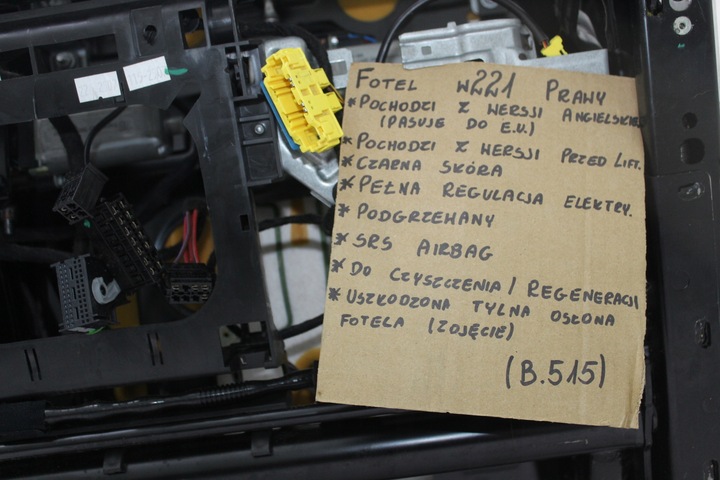 FOTEL W221 PRAWY
* POCHODZI Z WERSJI ANGIELSKIEJ
(PASUJE DO E.U.)
* POCHODZI Z WERSJI PRZED LIFT.
* CZARNA SKÓRA
* PEŁNA REGULACJA ELEKTRY.
* PODGRZEWANY
* SRS AIRBAG
* DO CZYSZCZENIA / REGENERACJI
* USZKODZONA TYLNA OSŁONA
FOTELA (ZDJĘCIE)
(B.515)